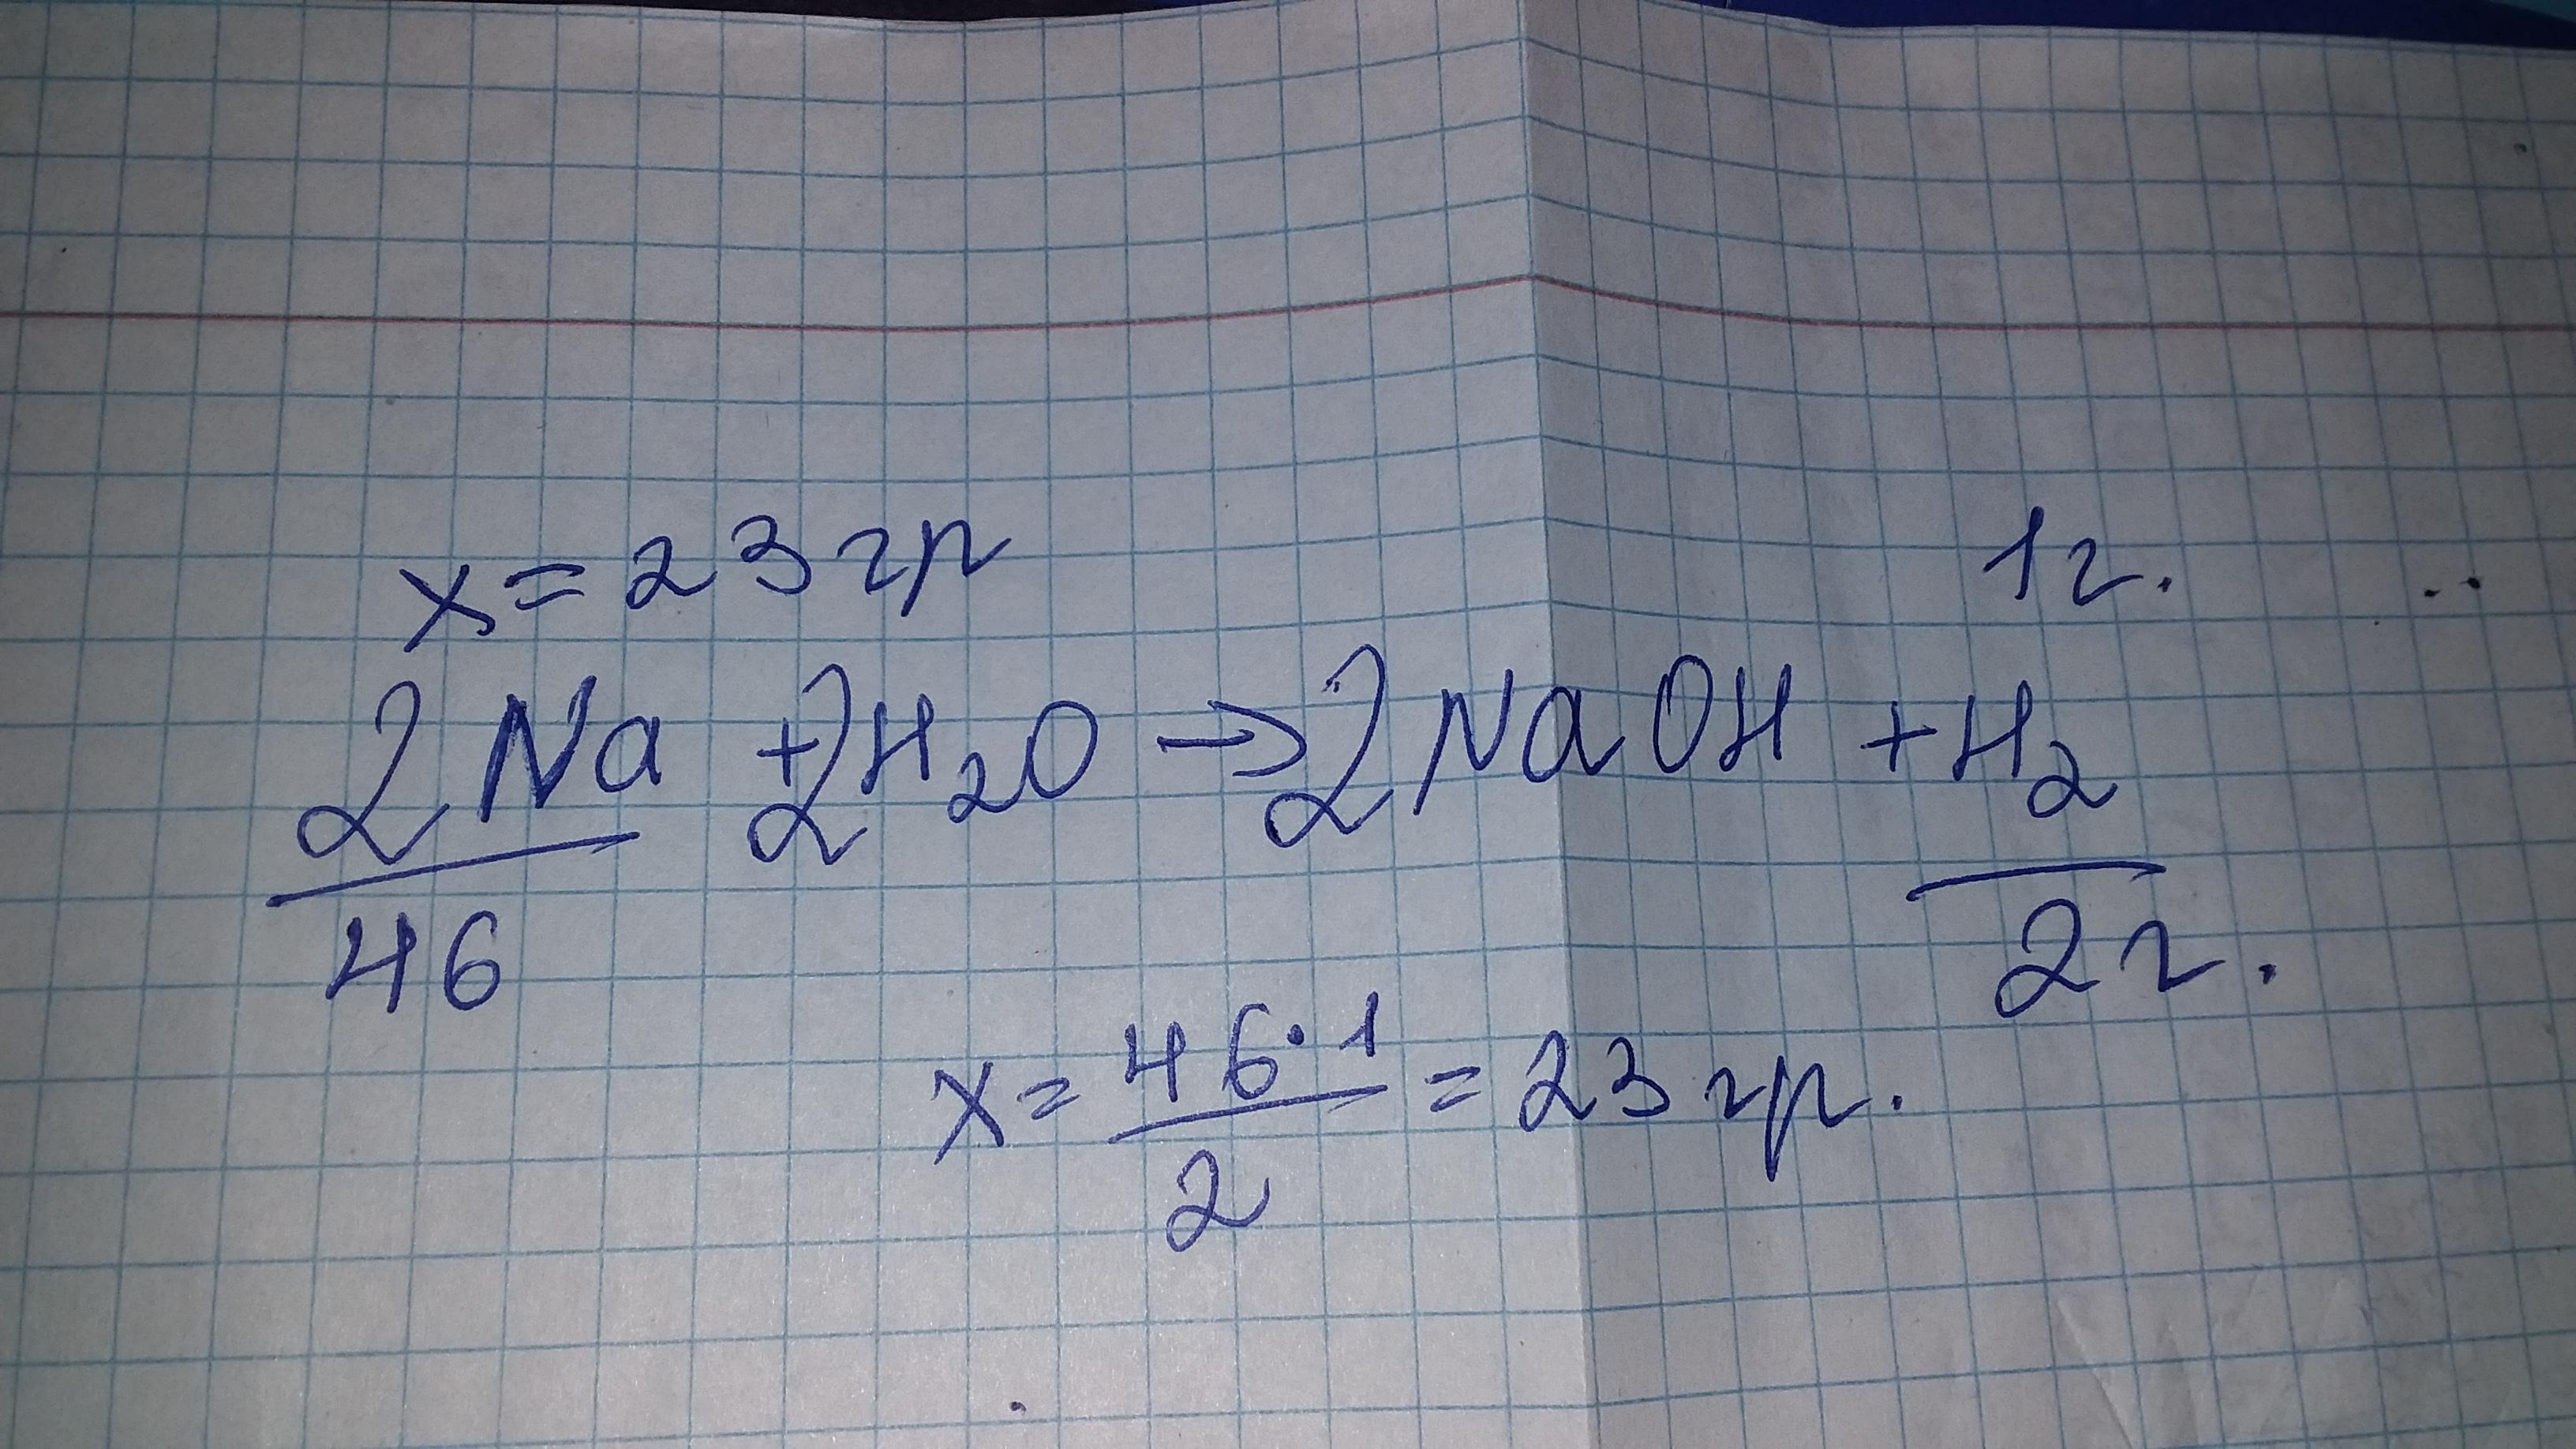 x = 23 гр 1 г.
2 Na + 2 H₂O → 2 NaOH + H₂
46 2 г.
x = 46 · 1 / 2 = 23 гр.